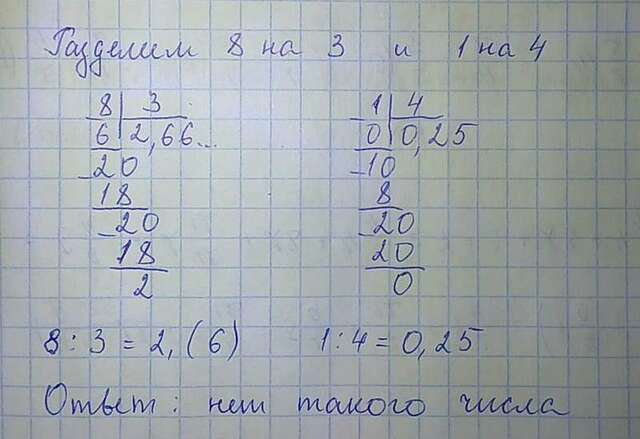 Разделим 8 на 3 и 1 на 4
8 3 1 4
6 2,66... 0 0,25
-20 -10
18 8
-20 -20
18 20
2 0
8 : 3 = 2,(6) 1 : 4 = 0,25
Ответ: нет такого числа